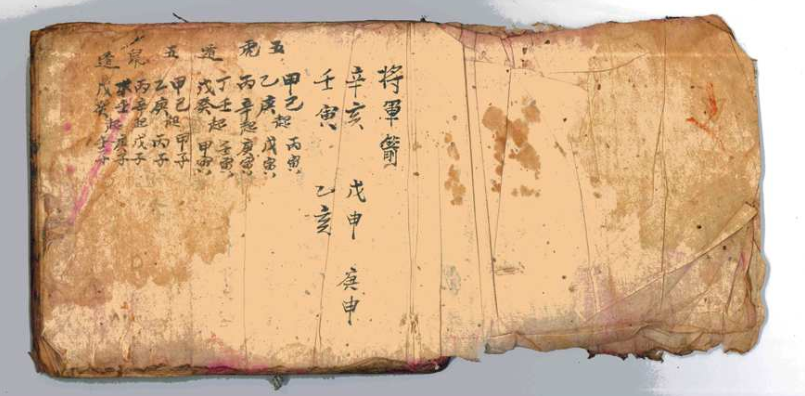 将軍箭
辛亥 戊申 庚申
壬寅 乙亥
五虎遁
甲己起丙寅
乙庚 戊寅
丙辛起庚寅
丁壬 壬寅
戊癸起甲寅
五鼠遁
甲己起甲子
乙庚 丙子
丙辛起戊子
壬 庚子
戊癸起壬子